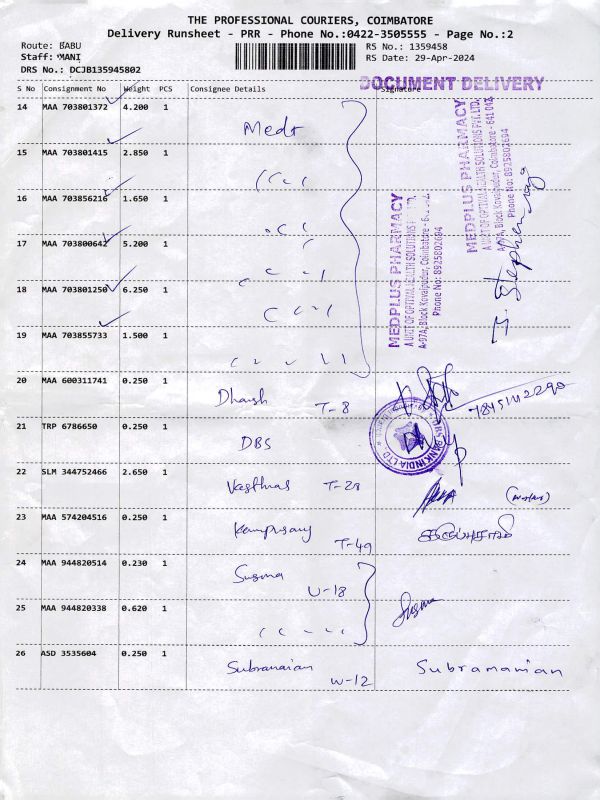 THE PROFESSIONAL COURIERS, COIMBATORE
Delivery Runsheet - PRR - Phone No.:0422-3505555 - Page No.:2
Route: BABU
Staff: MANI
DRS No.: DCJB135945802
RS No.: 1359458
RS Date: 29-Apr-2024
DOCUMENT DELIVERY
S No Consignment No Weight PCS Consignee Details Signature
14 MAA 703801372 4.200 1
15 MAA 703801415 2.850 1
16 MAA 703856216 1.650 1
17 MAA 703800642 5.200 1
18 MAA 703801250 6.250 1
19 MAA 703855733 1.500 1
MEDPLUS PHARMACY
A UNIT OF OPTIVAL HEALTH SOLUTIONS PVT. LTD.
A-97A, Block Kovaipudur, Coimbatore - 641 042
Phone No: 8925802694
MEDPLUS PHARMACY
A UNIT OF OPTIVAL HEALTH SOLUTIONS PVT. LTD.
A-97A, Block Kovaipudur, Coimbatore
Phone No: 8925802694
Stephen
20 MAA 600311741 0.250 1 T-8
21 TRP 6786650 0.250 1 DBS
DBS BANK INDIA LTD
22 SLM 344752466 2.650 1
23 MAA 574204516 0.250 1 T-49
24 MAA 944820514 0.230 1 Susma U-18
25 MAA 944820338 0.620 1
26 ASD 3535604 0.250 1 W-12 Subramanian